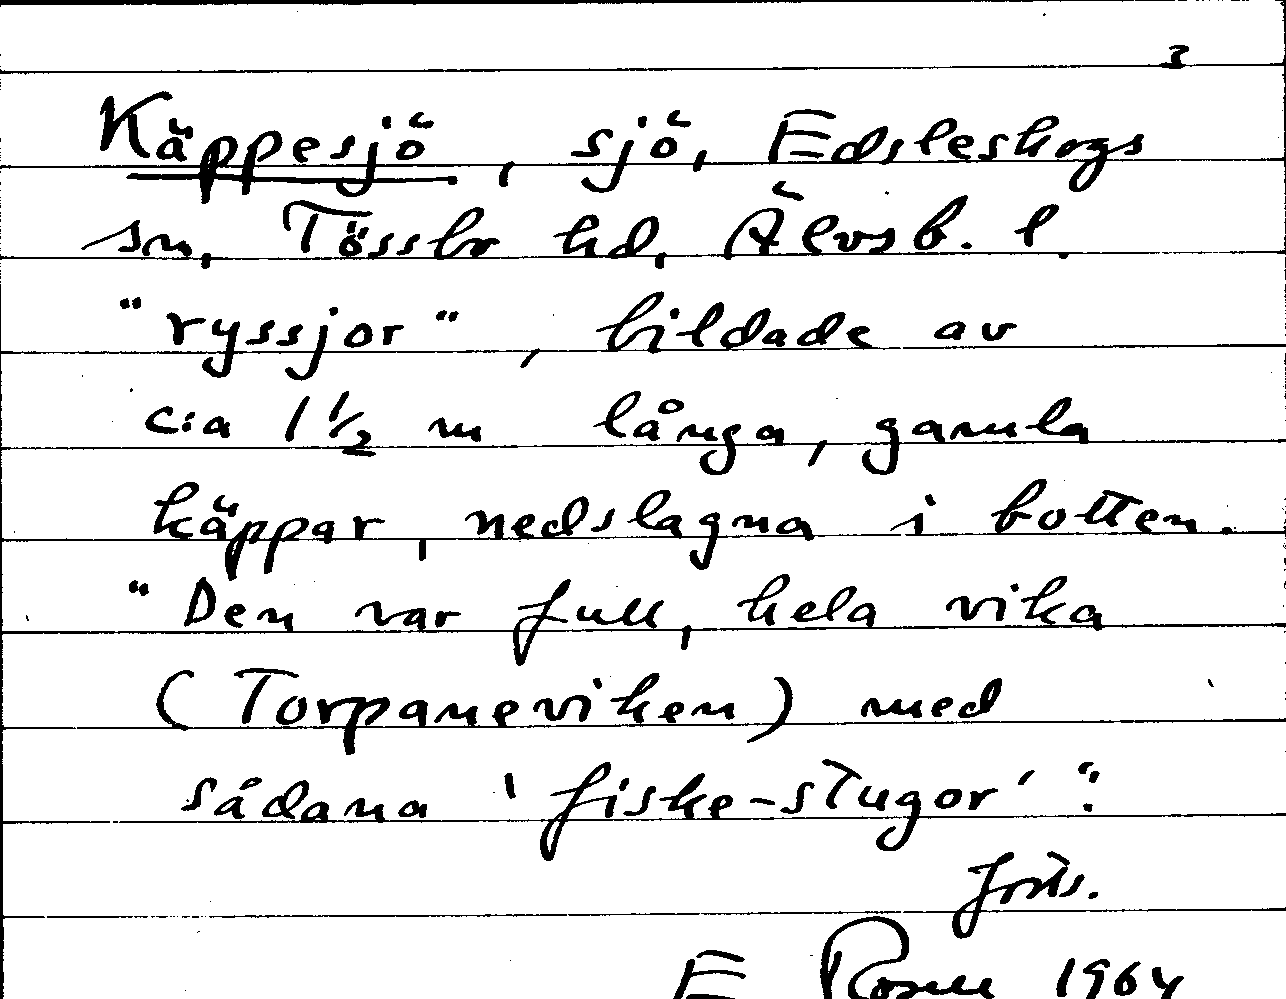 3
Käppesjö, sjö, Edsleskogs
sn, Tössbo hd, Älvsb. l.
"ryssjor", bildade av
c:a 1 1/2 m långa, gamla
käppar, nedslagna i botten.
"Den var full, hela vika
(Torpaneviken) med
sådana 'fiske-stugor'".
forts.
E 1964